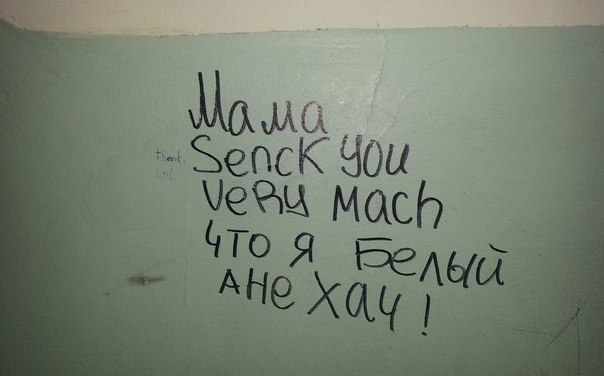 Мама
thank.
LoL
Senck you
very mach
что я Белый
ане хач!